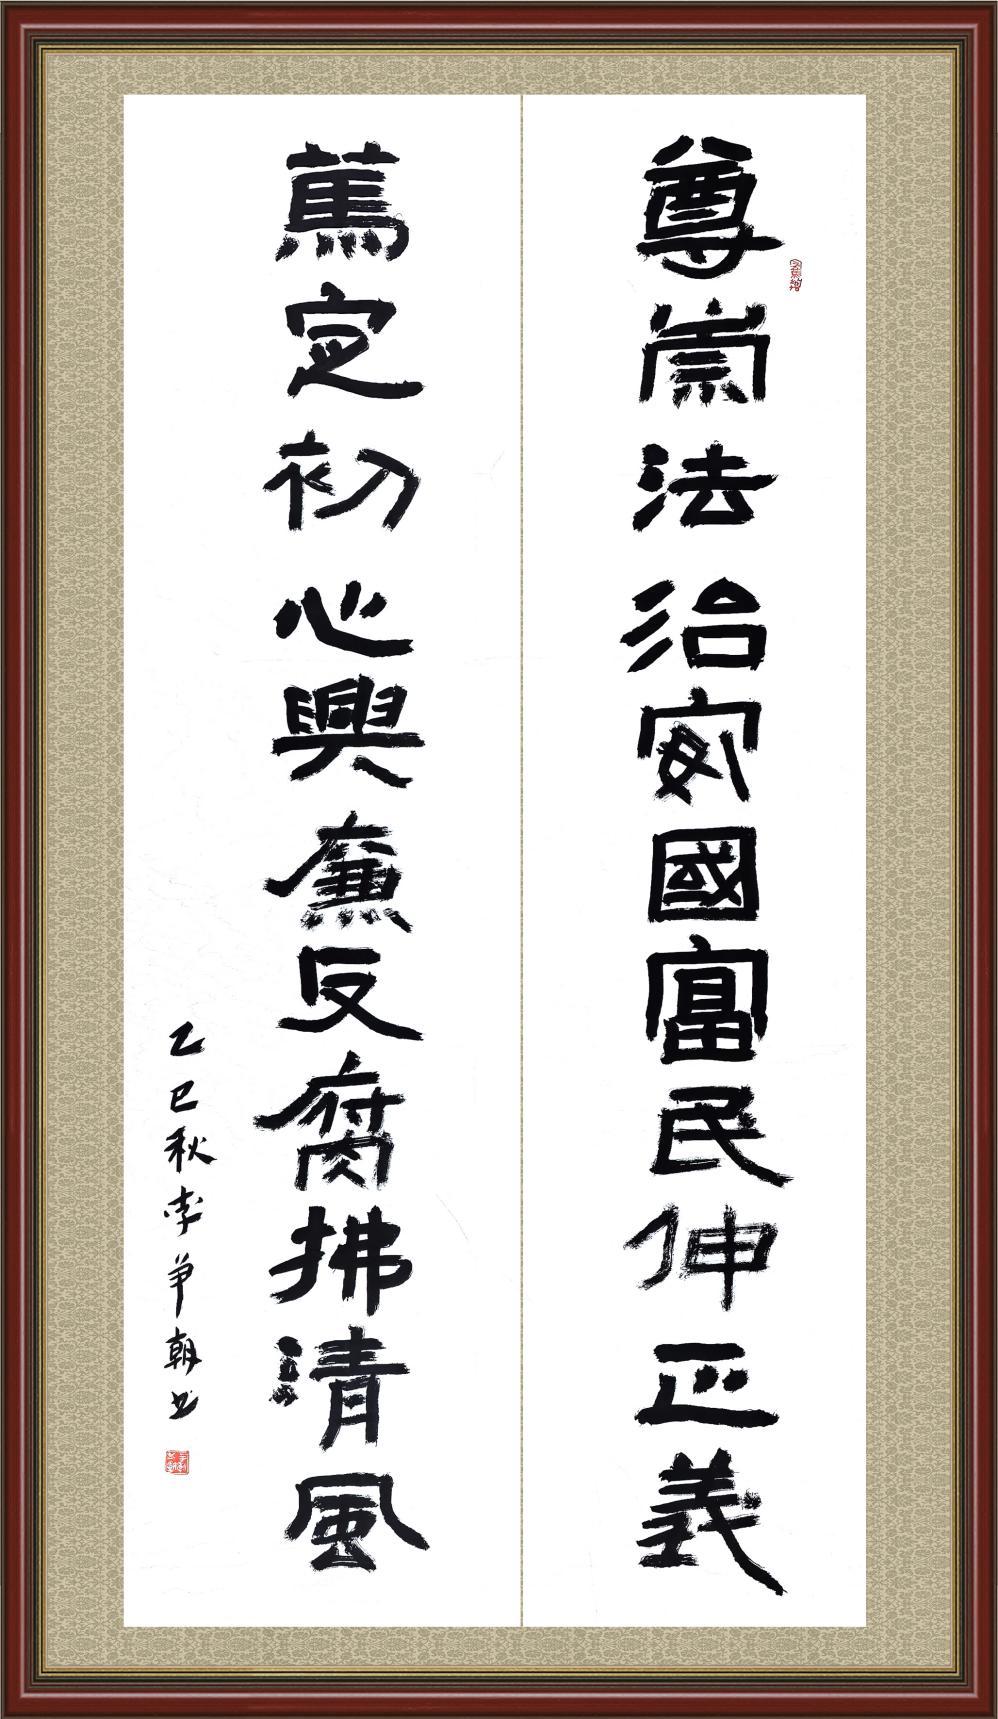 尊崇法治安國富民伸正義
篤定初心興廉反腐拂清風
乙巳秋李争朝书